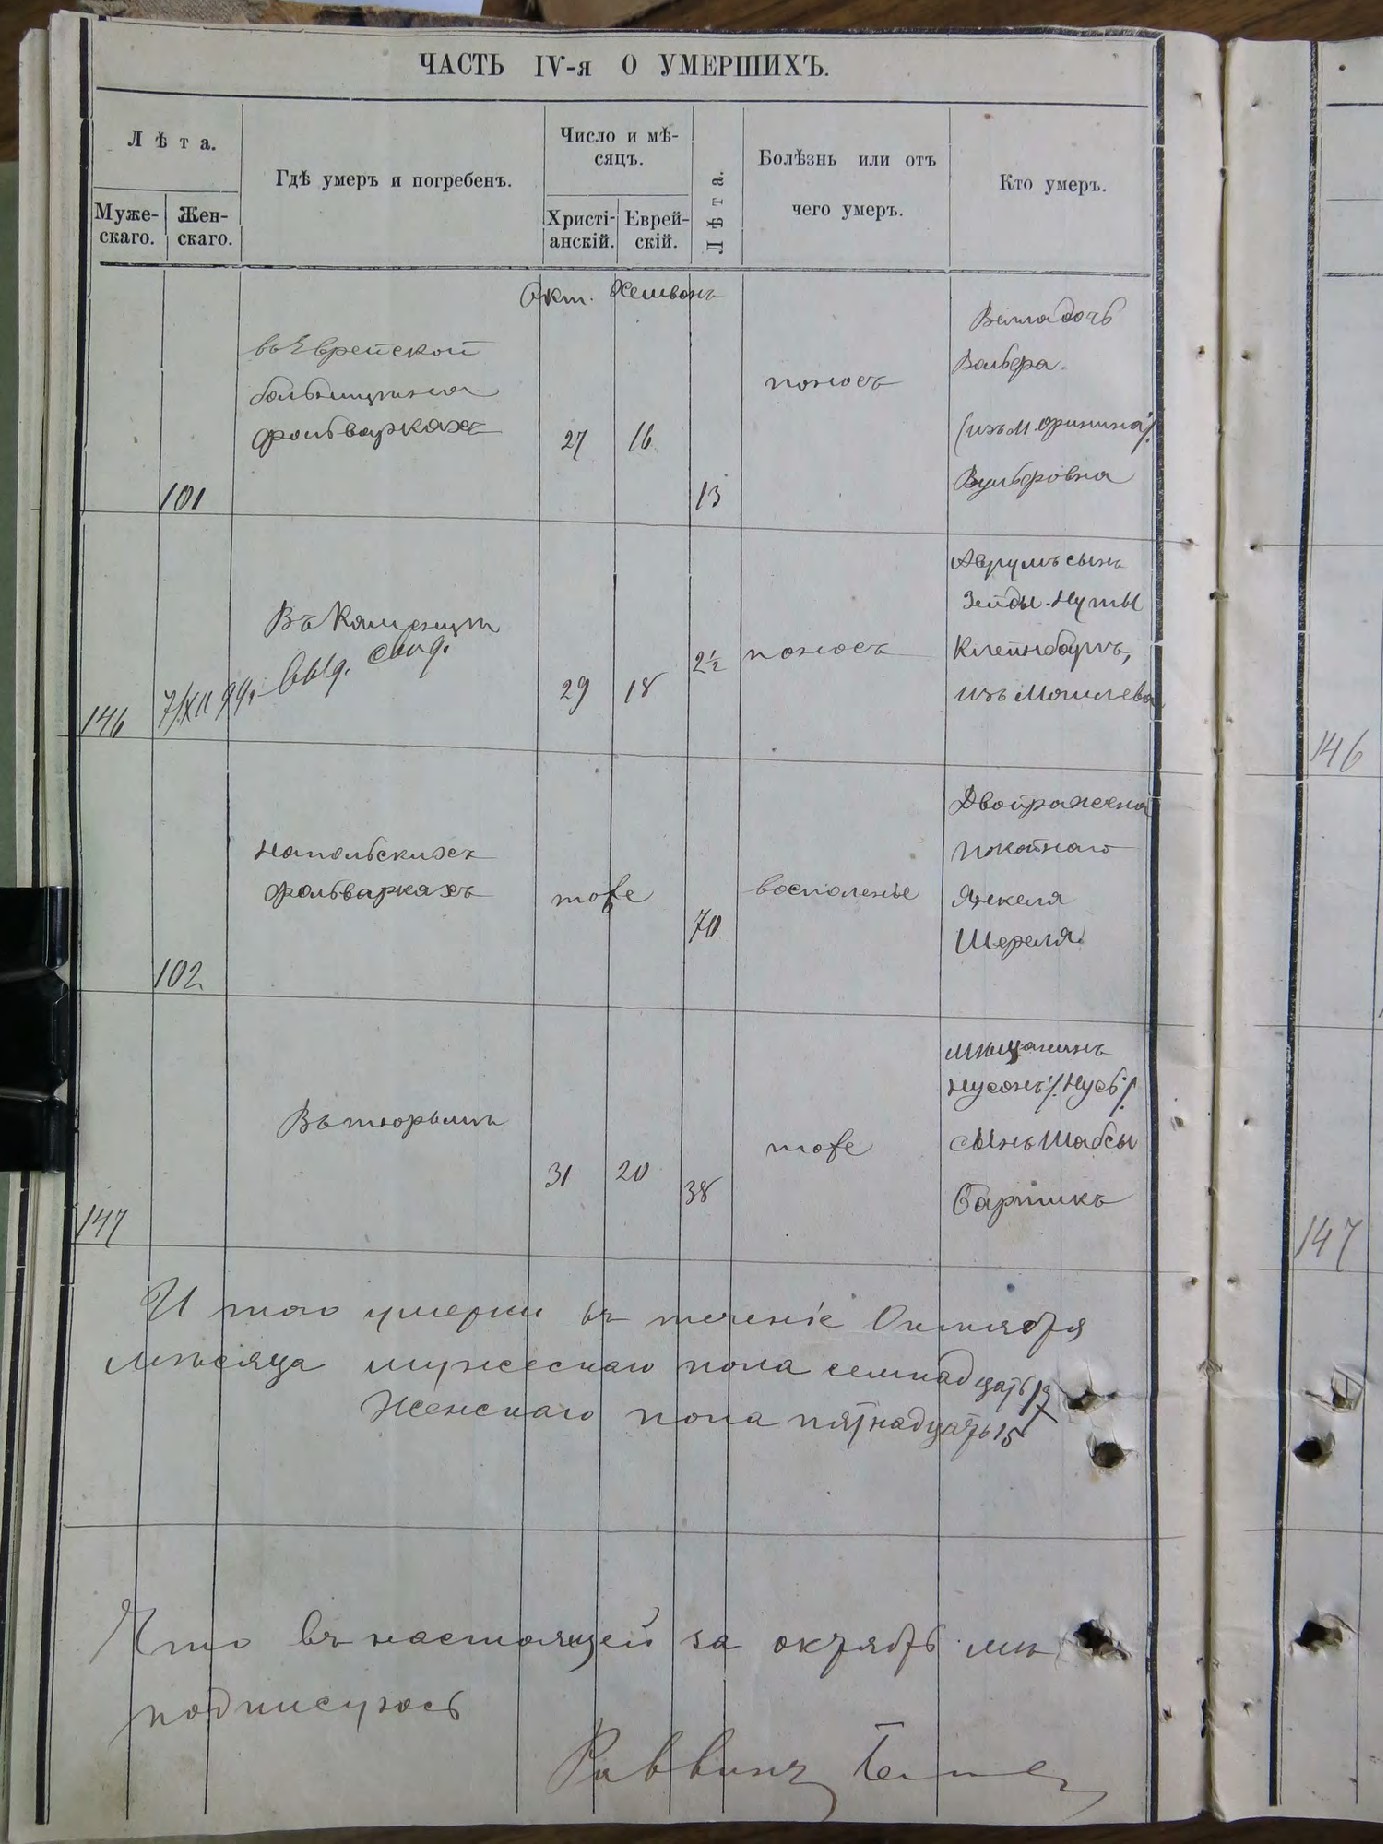 ЧАСТЬ IV-я О УМЕРШИХЪ.
Лѣта.
Муже-
скаго.
Жен-
скаго.
Гдѣ умеръ и погребенъ.
Число и мѣ-
сяцъ.
Христі-
анскій.
Еврей-
скій.
Лѣта.
Болѣзнь или отъ
чего умеръ.
Кто умеръ.
Окт. Хешвонъ
101
въ Еврейской
больницѣ на
фольваркахъ
27
16
13
поносъ
дочь
Вольфа
/изъ М
Вульфовна
146
7/XII 99.
Въ Каменцѣ
выд. свид.
29
18
2½
поносъ
Аврумъ сынъ
Зейды-Нуты
Клейнбаумъ,
изъ Могилева
102.
На польскихъ
фольваркахъ
тоже
70
воспаленіе
Двойра жена
покойнаго
Янкеля
Шереля
147
Въ тюрьмѣ
31
20
38
тоже
мѣщанинъ
Нусонъ /Нусъ/
сынъ Шабсы
Бартикъ
И того умерли въ теченіе Октября
мѣсяца мужескаго пола семнадцать 17
Женскаго пола пятнадцать 15
Что въ настоящей за октябрь мѣ
подписуюсь
Раввинъ
146
147